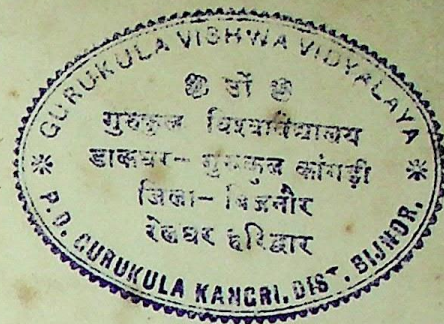 GURUKULA VISHWA VIDYALAYA
ओं
गुरुकुल विश्वविद्यालय
डाकघर- गुरुकुल कांगड़ी
जिला- बिजनौर
रेलघर हरिद्वार
P.O. GURUKULA KANGRI. DIST. BIJNOR.